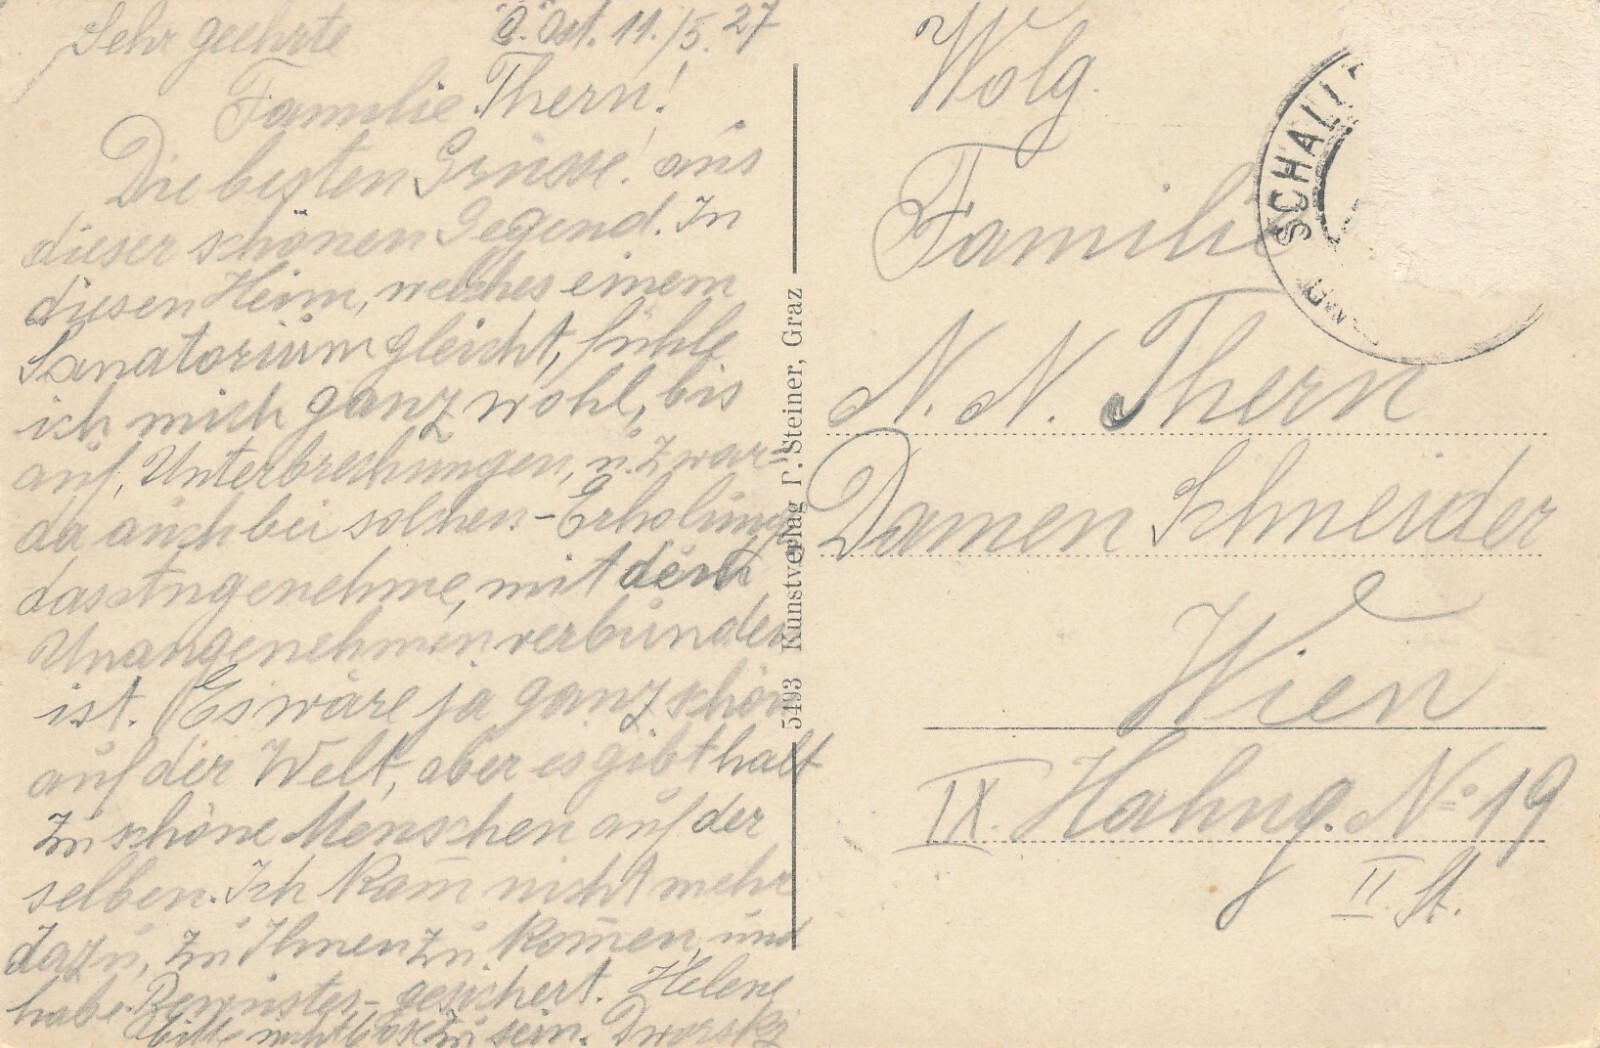 Sehr geehrte
Ö. Ost. 11./5. 27
Familie Thern!
Die besten Grüsse! aus
dieser schönen Gegend. In
diesen Heim, welches einem
Sanatorium gleicht, fühle
ich mich ganz wohl, bis
auf, Unterbrechungen, u. zwar=
da auch bei solchen-Erholung
das Angenehme, mit dem
Unangenehmen verbunden
ist. Es wäre ja ganz schön
auf der Welt, aber es gibt halt
zu schöne Menschen auf der
selben. Ich kam̄ nicht mehr
dazu, zu Ihnen zu kom̄en, und
habe gesichert. Helene
bitte nicht böse zu sein. Dworski
5493 Kunstverlag F. Steiner, Graz
Wolg.
Familie
N. N. Thern
Damen Schneider
Wien
IX. Hahng. No 19
II. St.
SCHALL